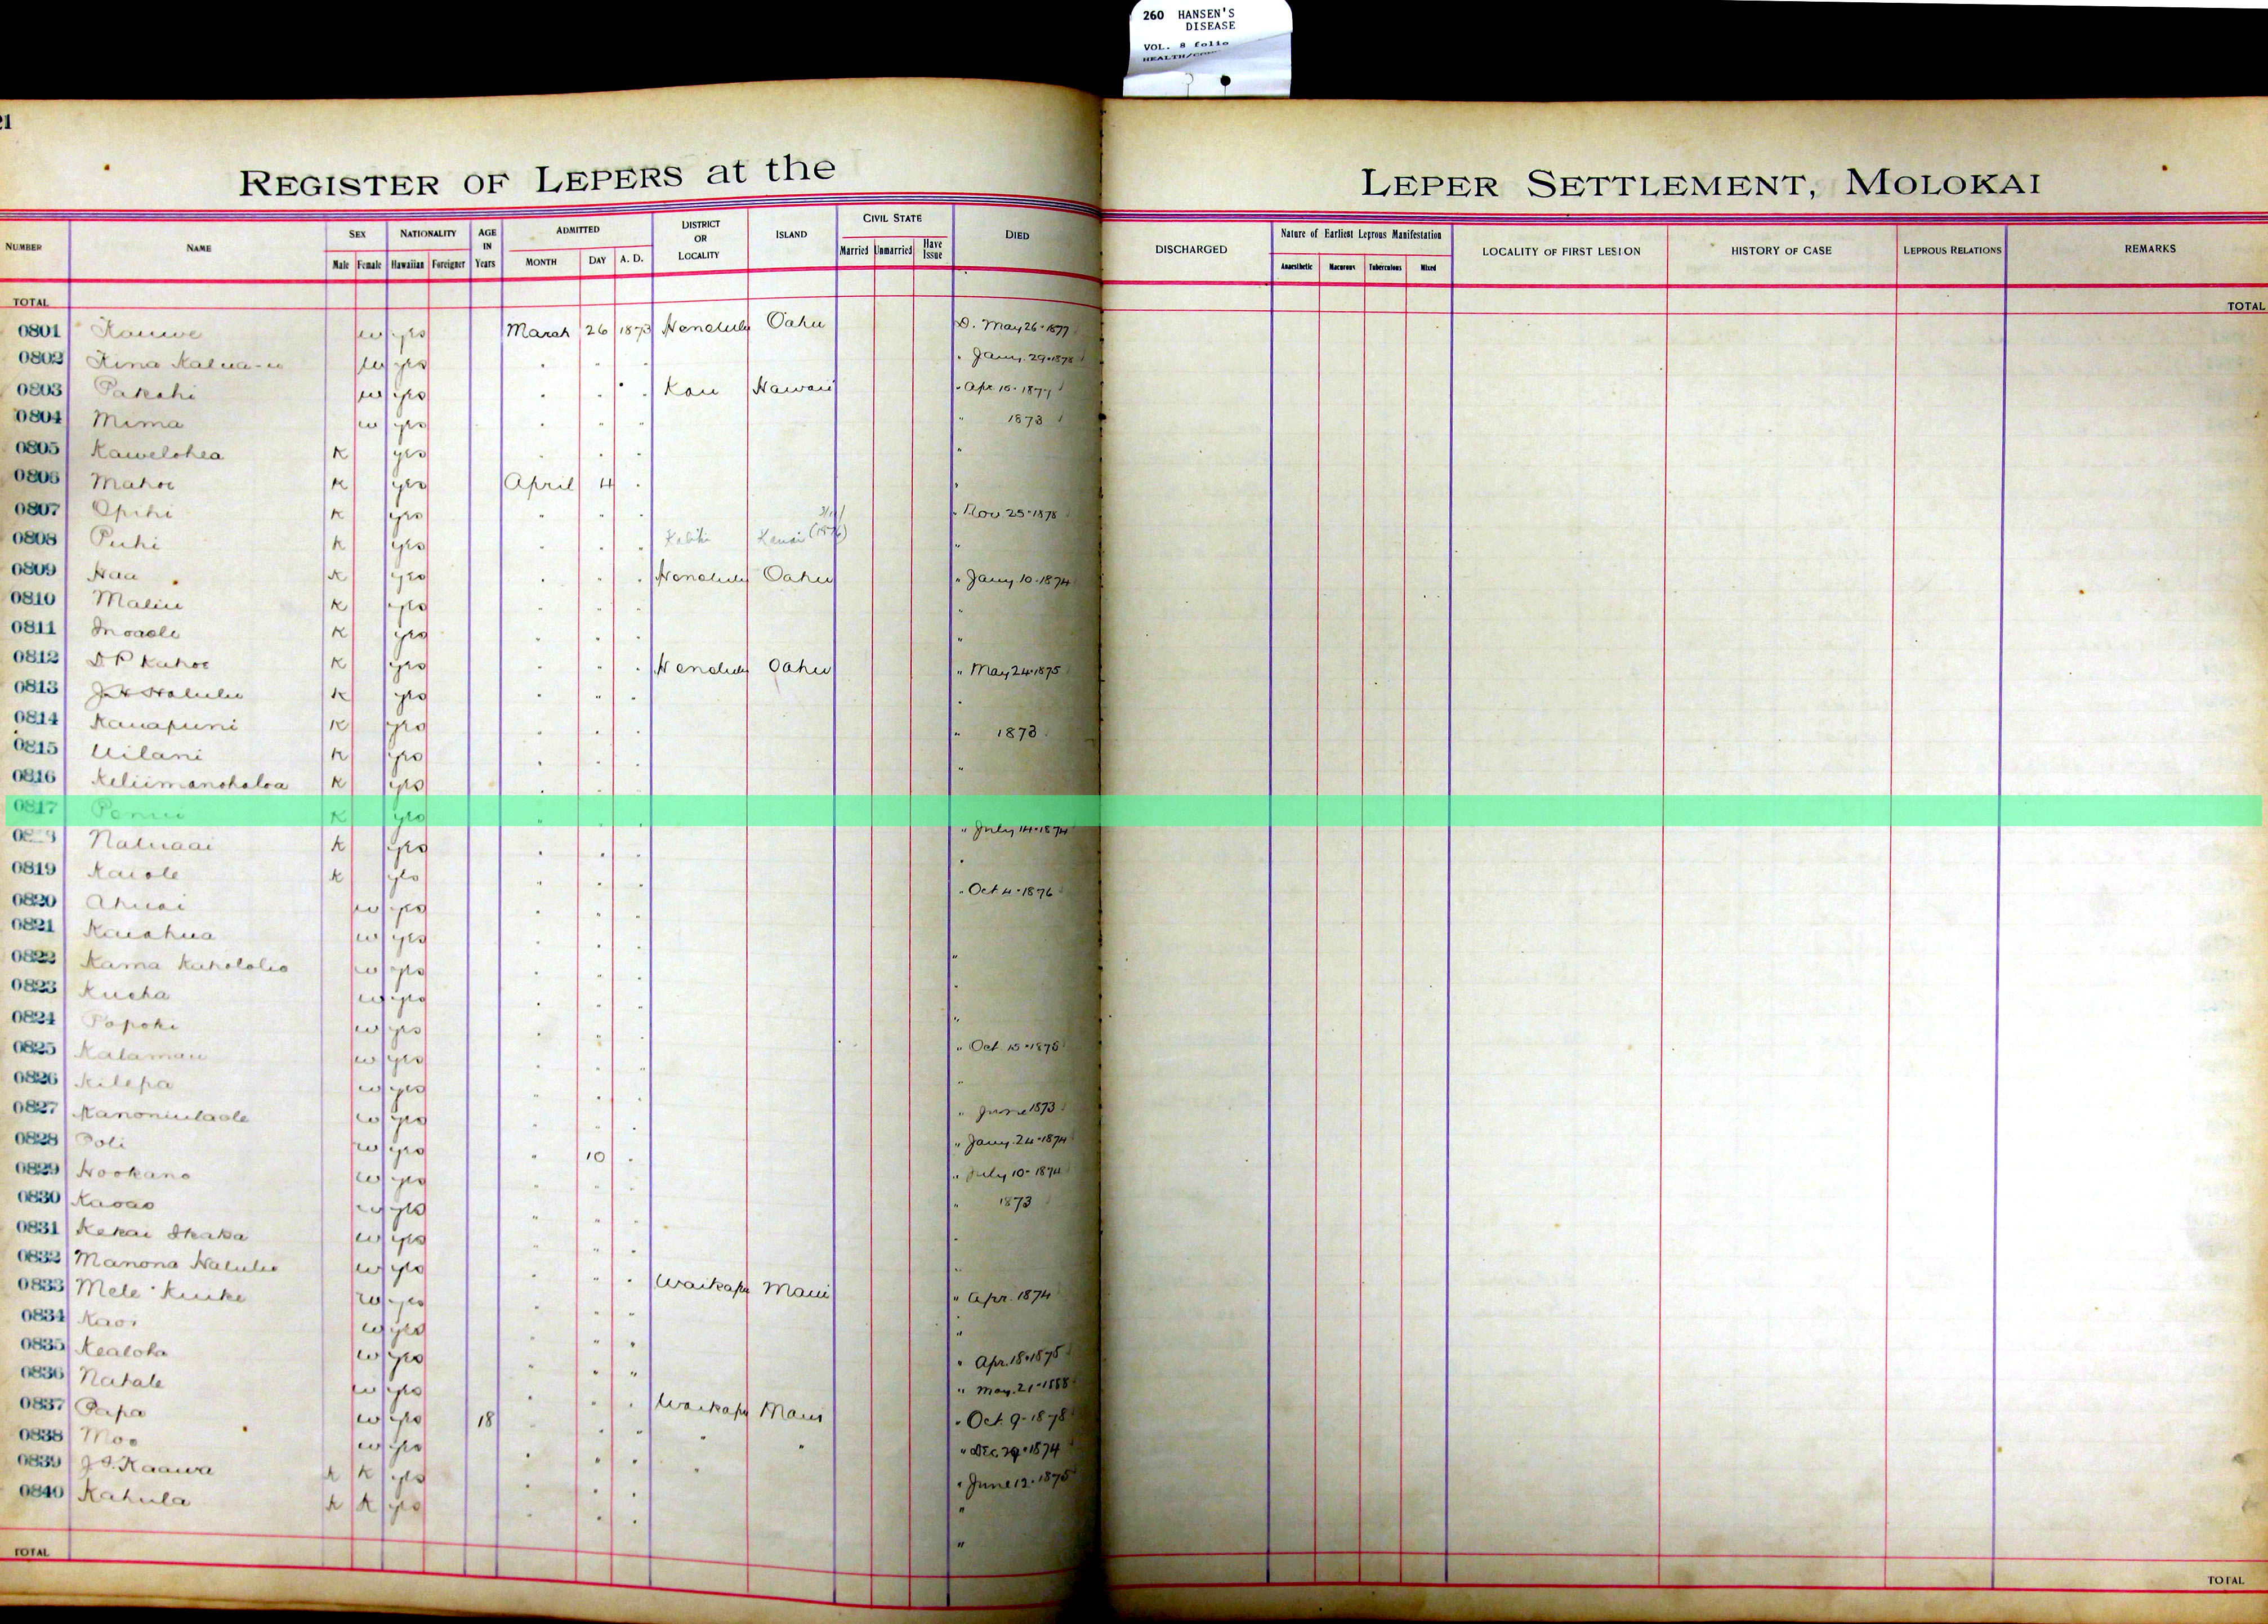 260 HANSEN'S
DISEASE
VOL. 8 folio
21
REGISTER OF LEPERS at the LEPER SETTLEMENT, MOLOKAI
NUMBER NAME SEX Male Female NATIONALITY Hawaiian Foreigner AGE IN Years ADMITTED MONTH DAY A. D. DISTRICT OR LOCALITY ISLAND CIVIL STATE Married Unmarried Have Issue DIED DISCHARGED Nature of Earliest Leprous Manifestation Anaesthetic Macurous Tuberculous Mixed LOCALITY OF FIRST LESION HISTORY OF CASE LEPROUS RELATIONS REMARKS
TOTAL TOTAL
0801 Kauwe w yes March 26 1873 Honolulu Oahu D. May 26-1877
0802 Kina Kalua-u w yes " " " " Jany. 29-1878
0803 Pakahi w yes " " " Kau Hawaii " Apr 10-1877
0804 Mima w yes " " " " 1873
0805 Kawelohea K yes " " " "
0806 Mahoe K yes April 4 " "
0807 Opihi K yes " " " " Nov 25-1878
0808 Puhi K yes " " " Kauai "
0809 Haa K yes " " " Honolulu Oahu " Jany 10-1874
0810 Maliu K yes " " " "
0811 Inoaole K yes " " " "
0812 D P Kahoe K yes " " " Honolulu Oahu " May 24-1875
0813 J H Halulu K yes " " " "
0814 Kauapuni K yes " " " " 1873
0815 Uilani K yes " " " "
0816 Keliimanohaloa K yes " " "
0817 Penui K yes " " " " July 14-1874
Naluaai K yes " " " "
0819 Kaiole K yes " " " " Oct 4-1876
0820 Ahuai w yes " " "
0821 Kaiahua w yes " " " "
0822 Kama Kahololio w yes " " " "
0823 Kueha w yes " " " "
0824 Popoki w yes " " " " Oct. 15-1878
0825 Kalamau w yes " " " "
0826 Kilepa w yes " " " " June 1873
0827 Kanoniulaole w yes " " " " Jany. 24-1874
0828 Poli w yes " 10 " " July 10-1874
0829 Hookano w yes " " " " 1873
0830 Kaoao w yes " " " "
0831 Kekai Ikaka w yes " " " "
0832 Manona Halulu w yes " " " Waikapu Maui " Apr. 1874
0833 Mele Kuike w yes " " " "
0834 Kaoi w yes " " " " Apr. 18-1875
0835 Kealoha w yes " " " " May. 21-1888
0836 Nahale w yes " " " Waikapu Maui " Oct. 9-1878
0837 Papa w yes 18 " " " " " " Dec. 29-1874
0838 Moo w yes " " " " " June 12-1875
0839 J. S. Kaawa K K yes " " " "
0840 Kahula K K yes " " " "
TOTAL TOTAL